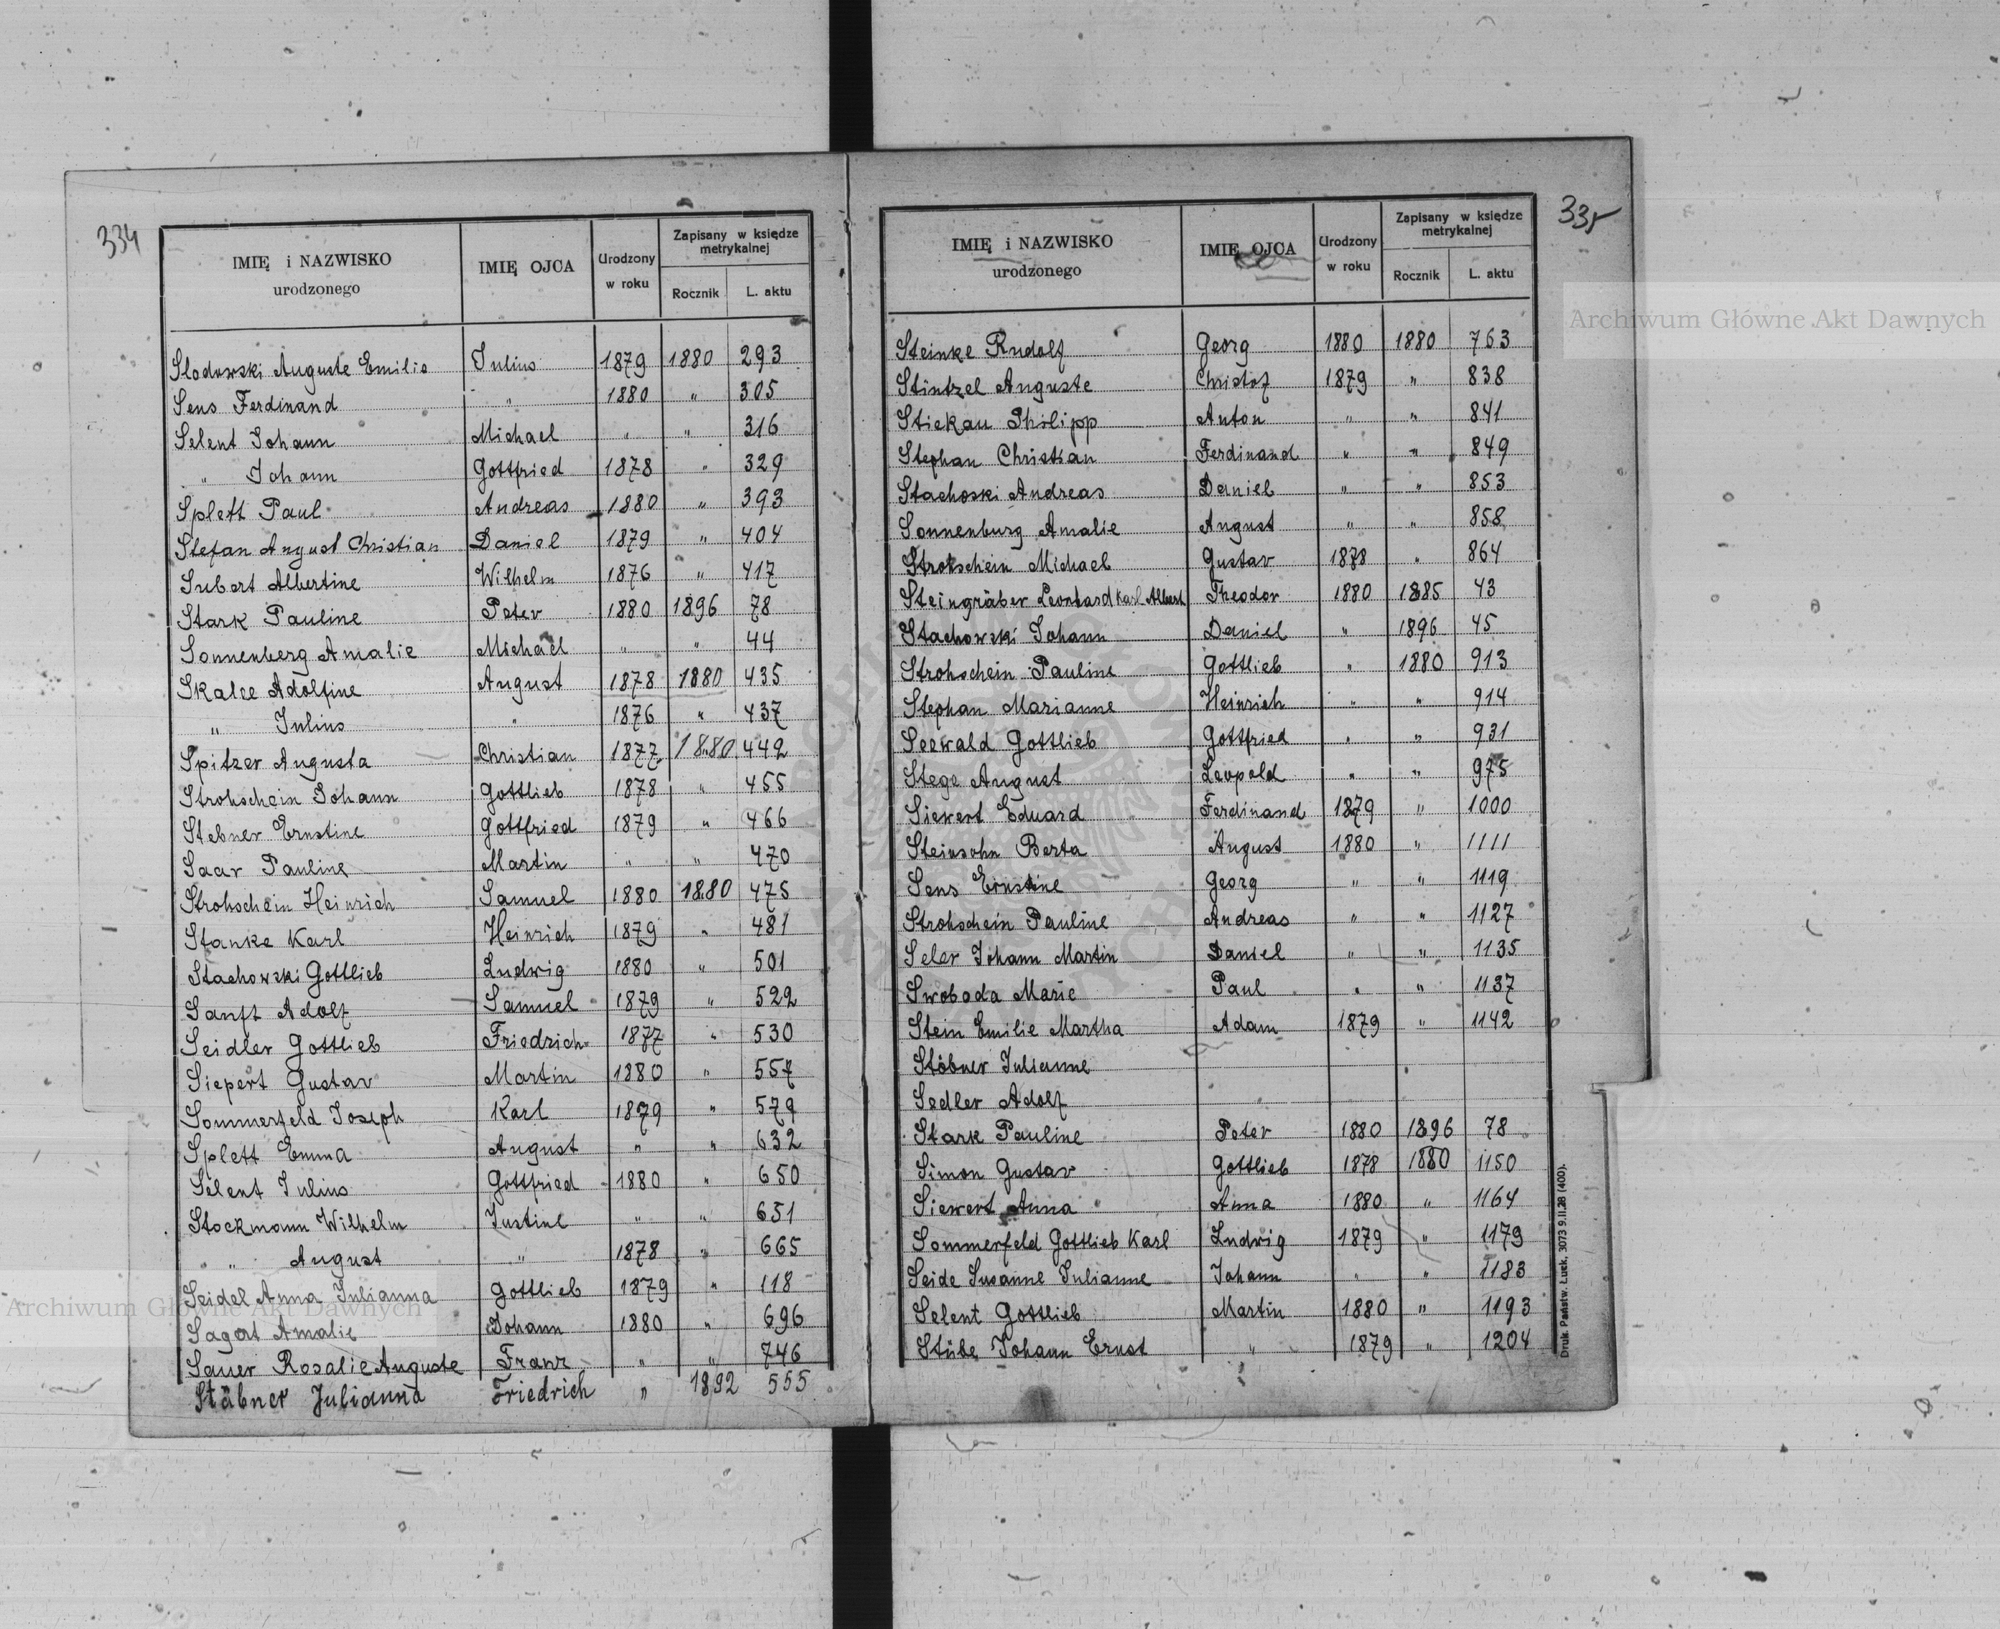 334
IMIĘ i NAZWISKO urodzonego | IMIĘ OJCA | Urodzony w roku | Zapisany w księdze metrykalnej | Rocznik | L. aktu
Slodowski Auguste Emilie Julius 1879 1880 293
Sens Ferdinand " 1880 " 305
Selent Johann Michael " " 316
" Johann Gottfried 1878 " 329
Splett Paul Andreas 1880 " 393
Stefan August Christian Daniel 1879 " 404
Subert Albertine Wilhelm 1876 " 417
Stark Pauline Peter 1880 1896 78
Sonnenberg Amalie Michael " " 44
Skalce Adolfine August 1878 1880 435
" Julius " 1876 " 437
Spitzer Augusta Christian 1877 1880 442
Strohschein Johann Gottlieb 1878 " 455
Stebner Ernstine Gottfried 1879 " 466
Saar Pauline Martin " " 470
Strohschein Heinrich Samuel 1880 1880 475
Stanke Karl Heinrich 1879 " 481
Stachowski Gottlieb Ludwig 1880 " 501
Sanft Adolf Samuel 1879 " 522
Seidler Gottlieb Friedrich 1877 " 530
Siepert Gustav Martin 1880 " 557
Sommerfeld Joseph Karl 1879 " 579
Splett Emma August " " 632
Selent Julius Gottfried 1880 " 650
Stockmann Wilhelm Justine " " 651
" August " 1878 " 665
Seidel Anna Julianna Gottlieb 1879 " 118
Sagert Amalie Johann 1880 " 696
Sauer Rosalie Auguste Franz " " 746
Stäbner Julianna Friedrich " 1892 555
335
IMIĘ i NAZWISKO urodzonego | IMIĘ OJCA | Urodzony w roku | Zapisany w księdze metrykalnej | Rocznik | L. aktu
Steinke Rudolf Georg 1880 1880 763
Stintzel Auguste Christof 1879 " 838
Stickau Philipp Anton " " 841
Stephan Christian Ferdinand " " 849
Stachoski Andreas Daniel " " 853
Sonnenburg Amalie August " " 858
Strohschein Michael Gustav 1878 " 864
Steingräber Leonhard Karl Albert Theodor 1880 1885 43
Stachowski Johann Daniel " 1896 45
Strohschein Pauline Gottlieb " 1880 913
Stephan Marianne Heinrich " " 914
Seewald Gottlieb Gottfried " " 931
Stege August Leopold " " 975
Siewert Eduard Ferdinand 1879 " 1000
Steinsohn Berta August 1880 " 1111
Sens Ernstine Georg " " 1119
Strohschein Pauline Andreas " " 1127
Seler Johann Martin Daniel " " 1135
Swoboda Marie Paul " " 1137
Stein Emilie Martha Adam 1879 " 1142
Stöbner Julianne
Sedler Adolf "
Stark Pauline Peter 1880 1896 78
Simon Gustav Gottlieb 1878 1880 1150
Siewert Anna Anna 1880 " 1164
Sommerfeld Gottlieb Karl Ludwig 1879 " 1179
Seide Susanne Julianne Johann " " 1183
Selent Gottlieb Martin 1880 " 1193
Stübe Johann Ernst " 1879 " 1204
Druk. Państw. Łuck. 3073 9.II.28 (400).
Archiwum Główne Akt Dawnych
Archiwum Główne Akt Dawnych